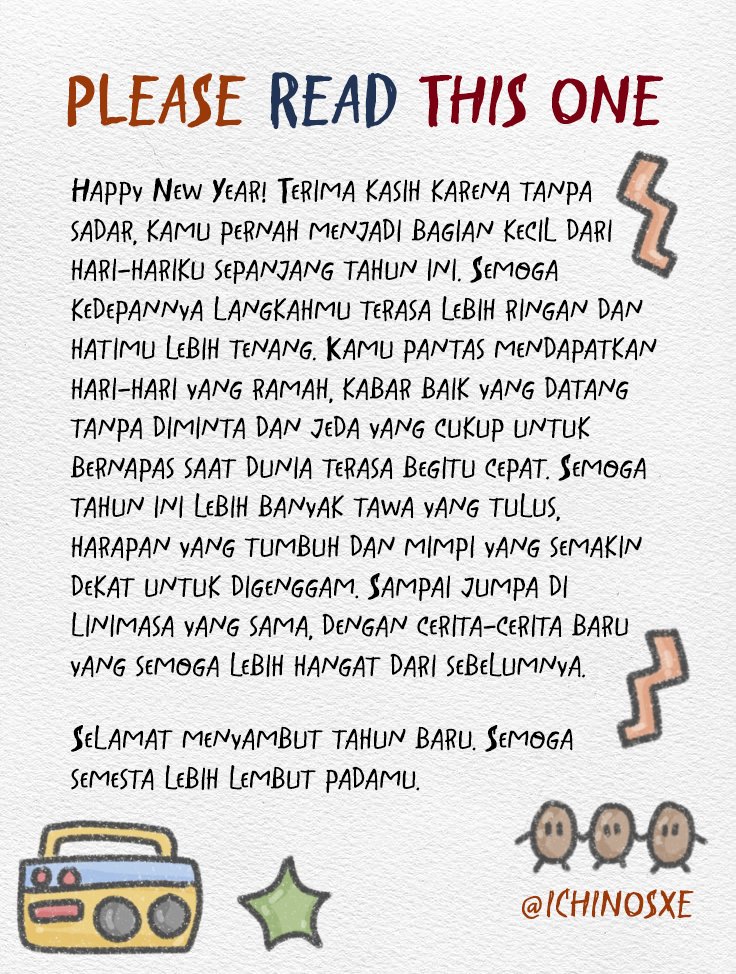 PLEASE READ THIS ONE
Happy New Year! Terima kasih karena tanpa
sadar, kamu pernah menjadi bagian kecil dari
hari-hariku sepanjang tahun ini. Semoga
kedepannya langkahmu terasa lebih ringan dan
hatimu lebih tenang. Kamu pantas mendapatkan
hari-hari yang ramah, kabar baik yang datang
tanpa diminta dan jeda yang cukup untuk
bernapas saat dunia terasa begitu cepat. Semoga
tahun ini lebih banyak tawa yang tulus,
harapan yang tumbuh dan mimpi yang semakin
dekat untuk digenggam. Sampai jumpa di
linimasa yang sama, dengan cerita-cerita baru
yang semoga lebih hangat dari sebelumnya.
Selamat menyambut tahun baru. Semoga
semesta lebih lembut padamu.
@ICHINOSXE